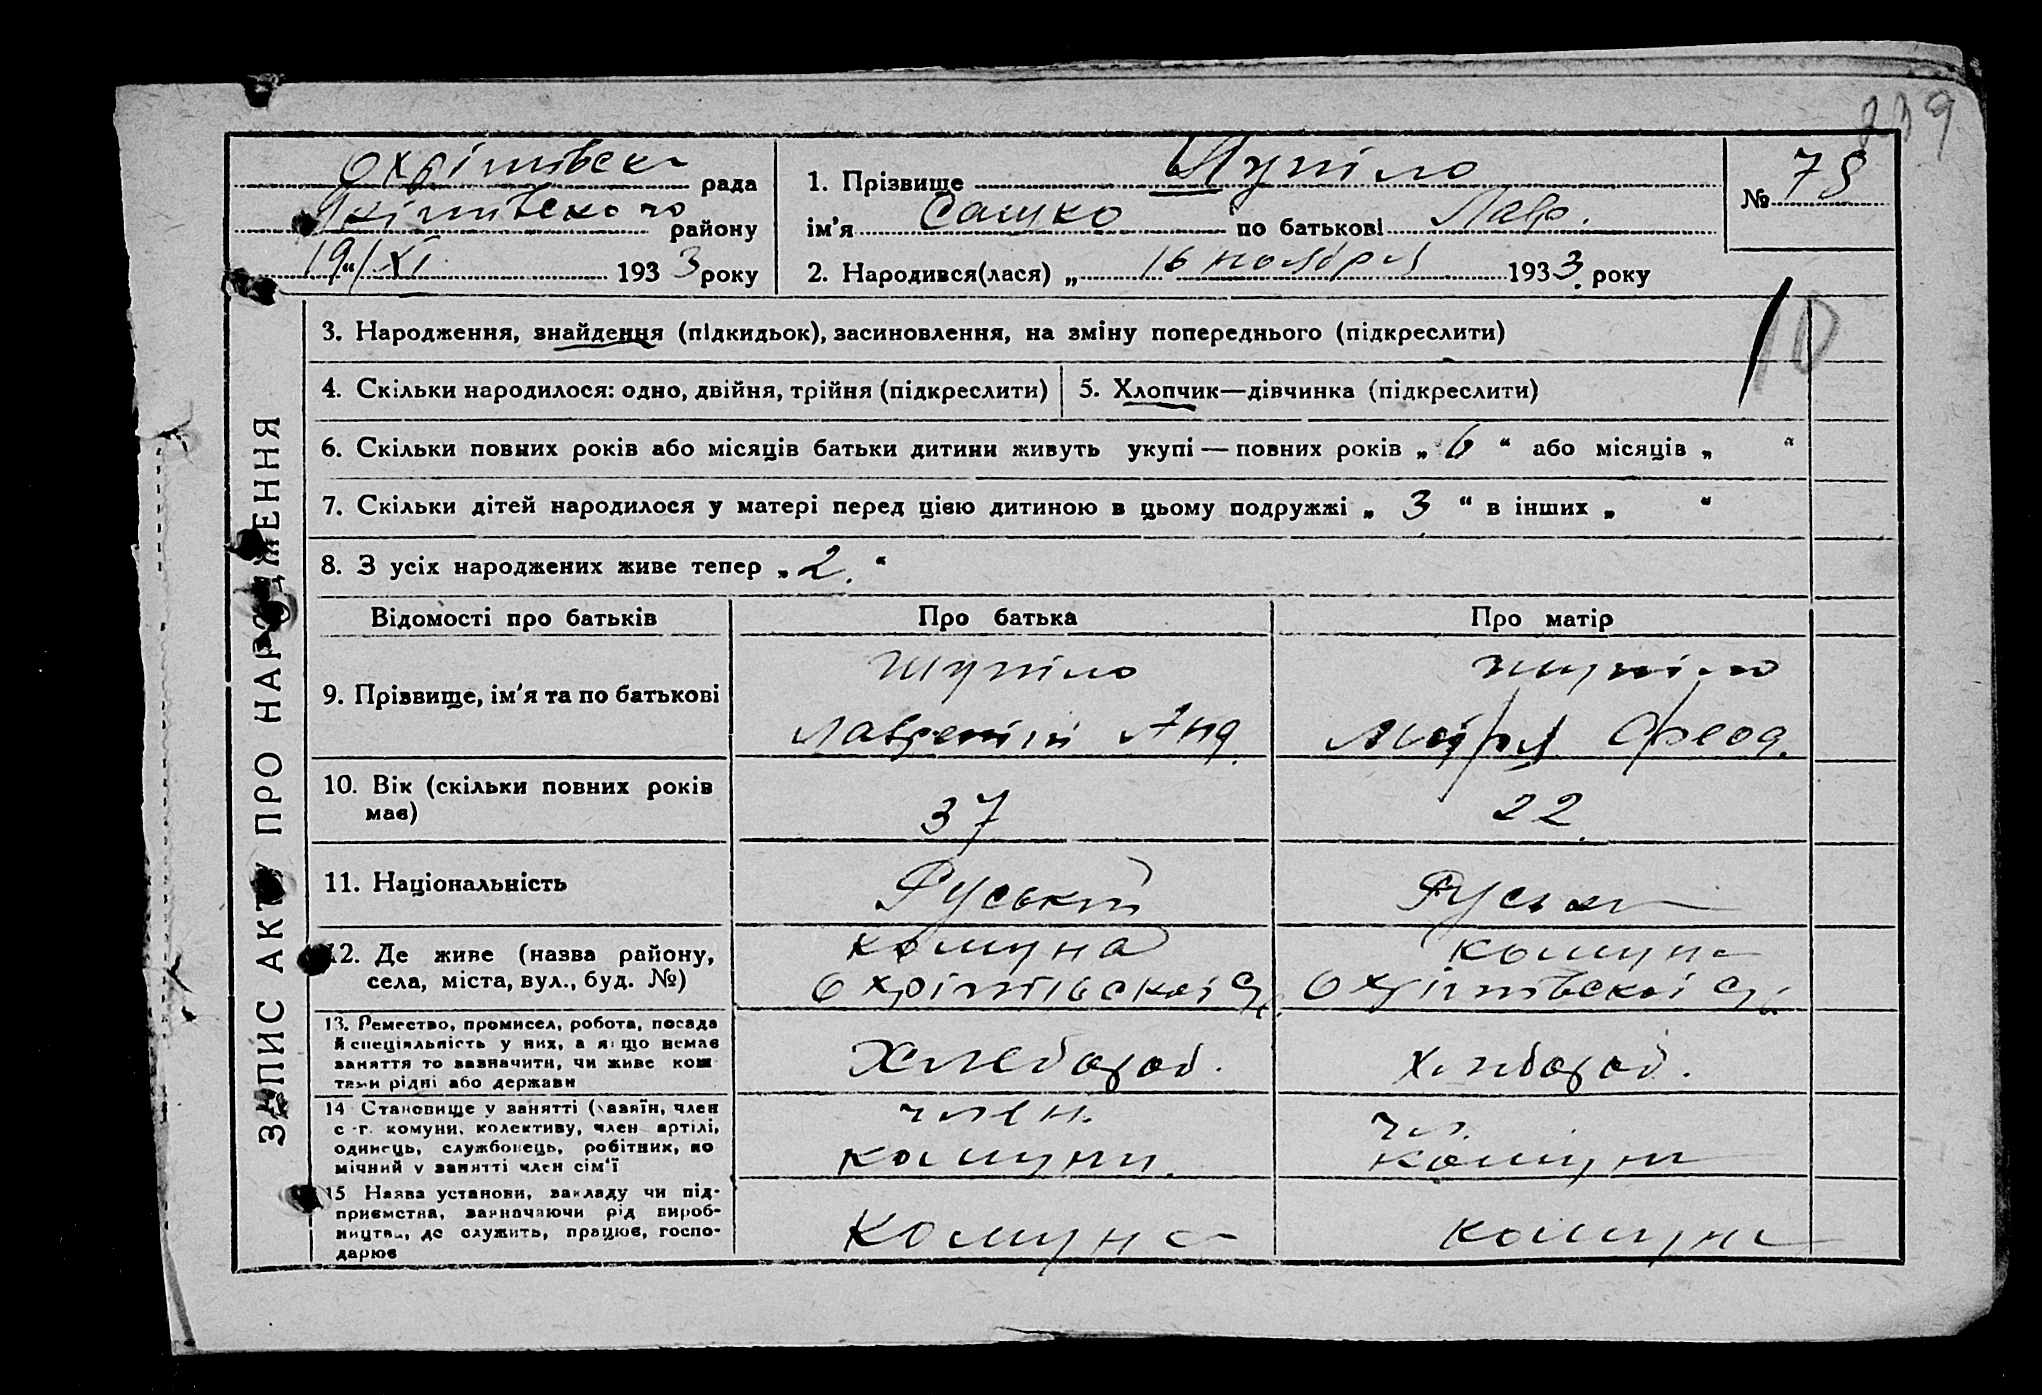 139
Охрімівська рада
Якімівського району
19/XI 1933 року
1. Прізвище Шуніло
ім'я Сашко по батькові Лавр.
2. Народився(лася) „ 16 ноября 1933 року
№ 78
10
ЗАПИС АКТУ ПРО НАРОДЖЕННЯ
3. Народження, знайдення (підкидьок), засиновлення, на зміну попереднього (підкреслити)
4. Скільки народилося: одно, двійня, трійня (підкреслити)
5. Хлопчик—дівчинка (підкреслити)
6. Скільки повних років або місяців батьки дитини живуть укупі — повних років „ 6 “ або місяців „ “
7. Скільки дітей народилося у матері перед цією дитиною в цьому подружжі „ 3 “ в інших „ “
8. З усіх народжених живе тепер „ 2. “
Відомості про батьків
Про батька
Про матір
9. Прізвище, ім'я та по батькові
Шуніло
Лаврентій Анд.
Шуніло
Марія Феод.
10. Вік (скільки повних років
має)
37
22
11. Національність
Руський
Руська
12. Де живе (назва району,
села, міста, вул., буд. №)
комуна
Охрімівської с/
комуна
Охрімівської с/
13. Ремество, промисел, робота, посада
й спеціяльність у них, а якщо немає
заняття то зазначити, чи живе кош
тами рідні або держави
Хлебороб.
Хлебороб.
14 Становище у занятті (хазяїн, член
с.-г. комуни, колективу, член артілі,
одинець, службовець, робітник, по
мічний у занятті член сім'ї
член.
комуни.
чл.
комуни
15 Назва установи, закладу чи під-
приємства, зазначаючи рід вироб-
ництва, де служить, працює, госпо-
дарює
Комуна
комуна